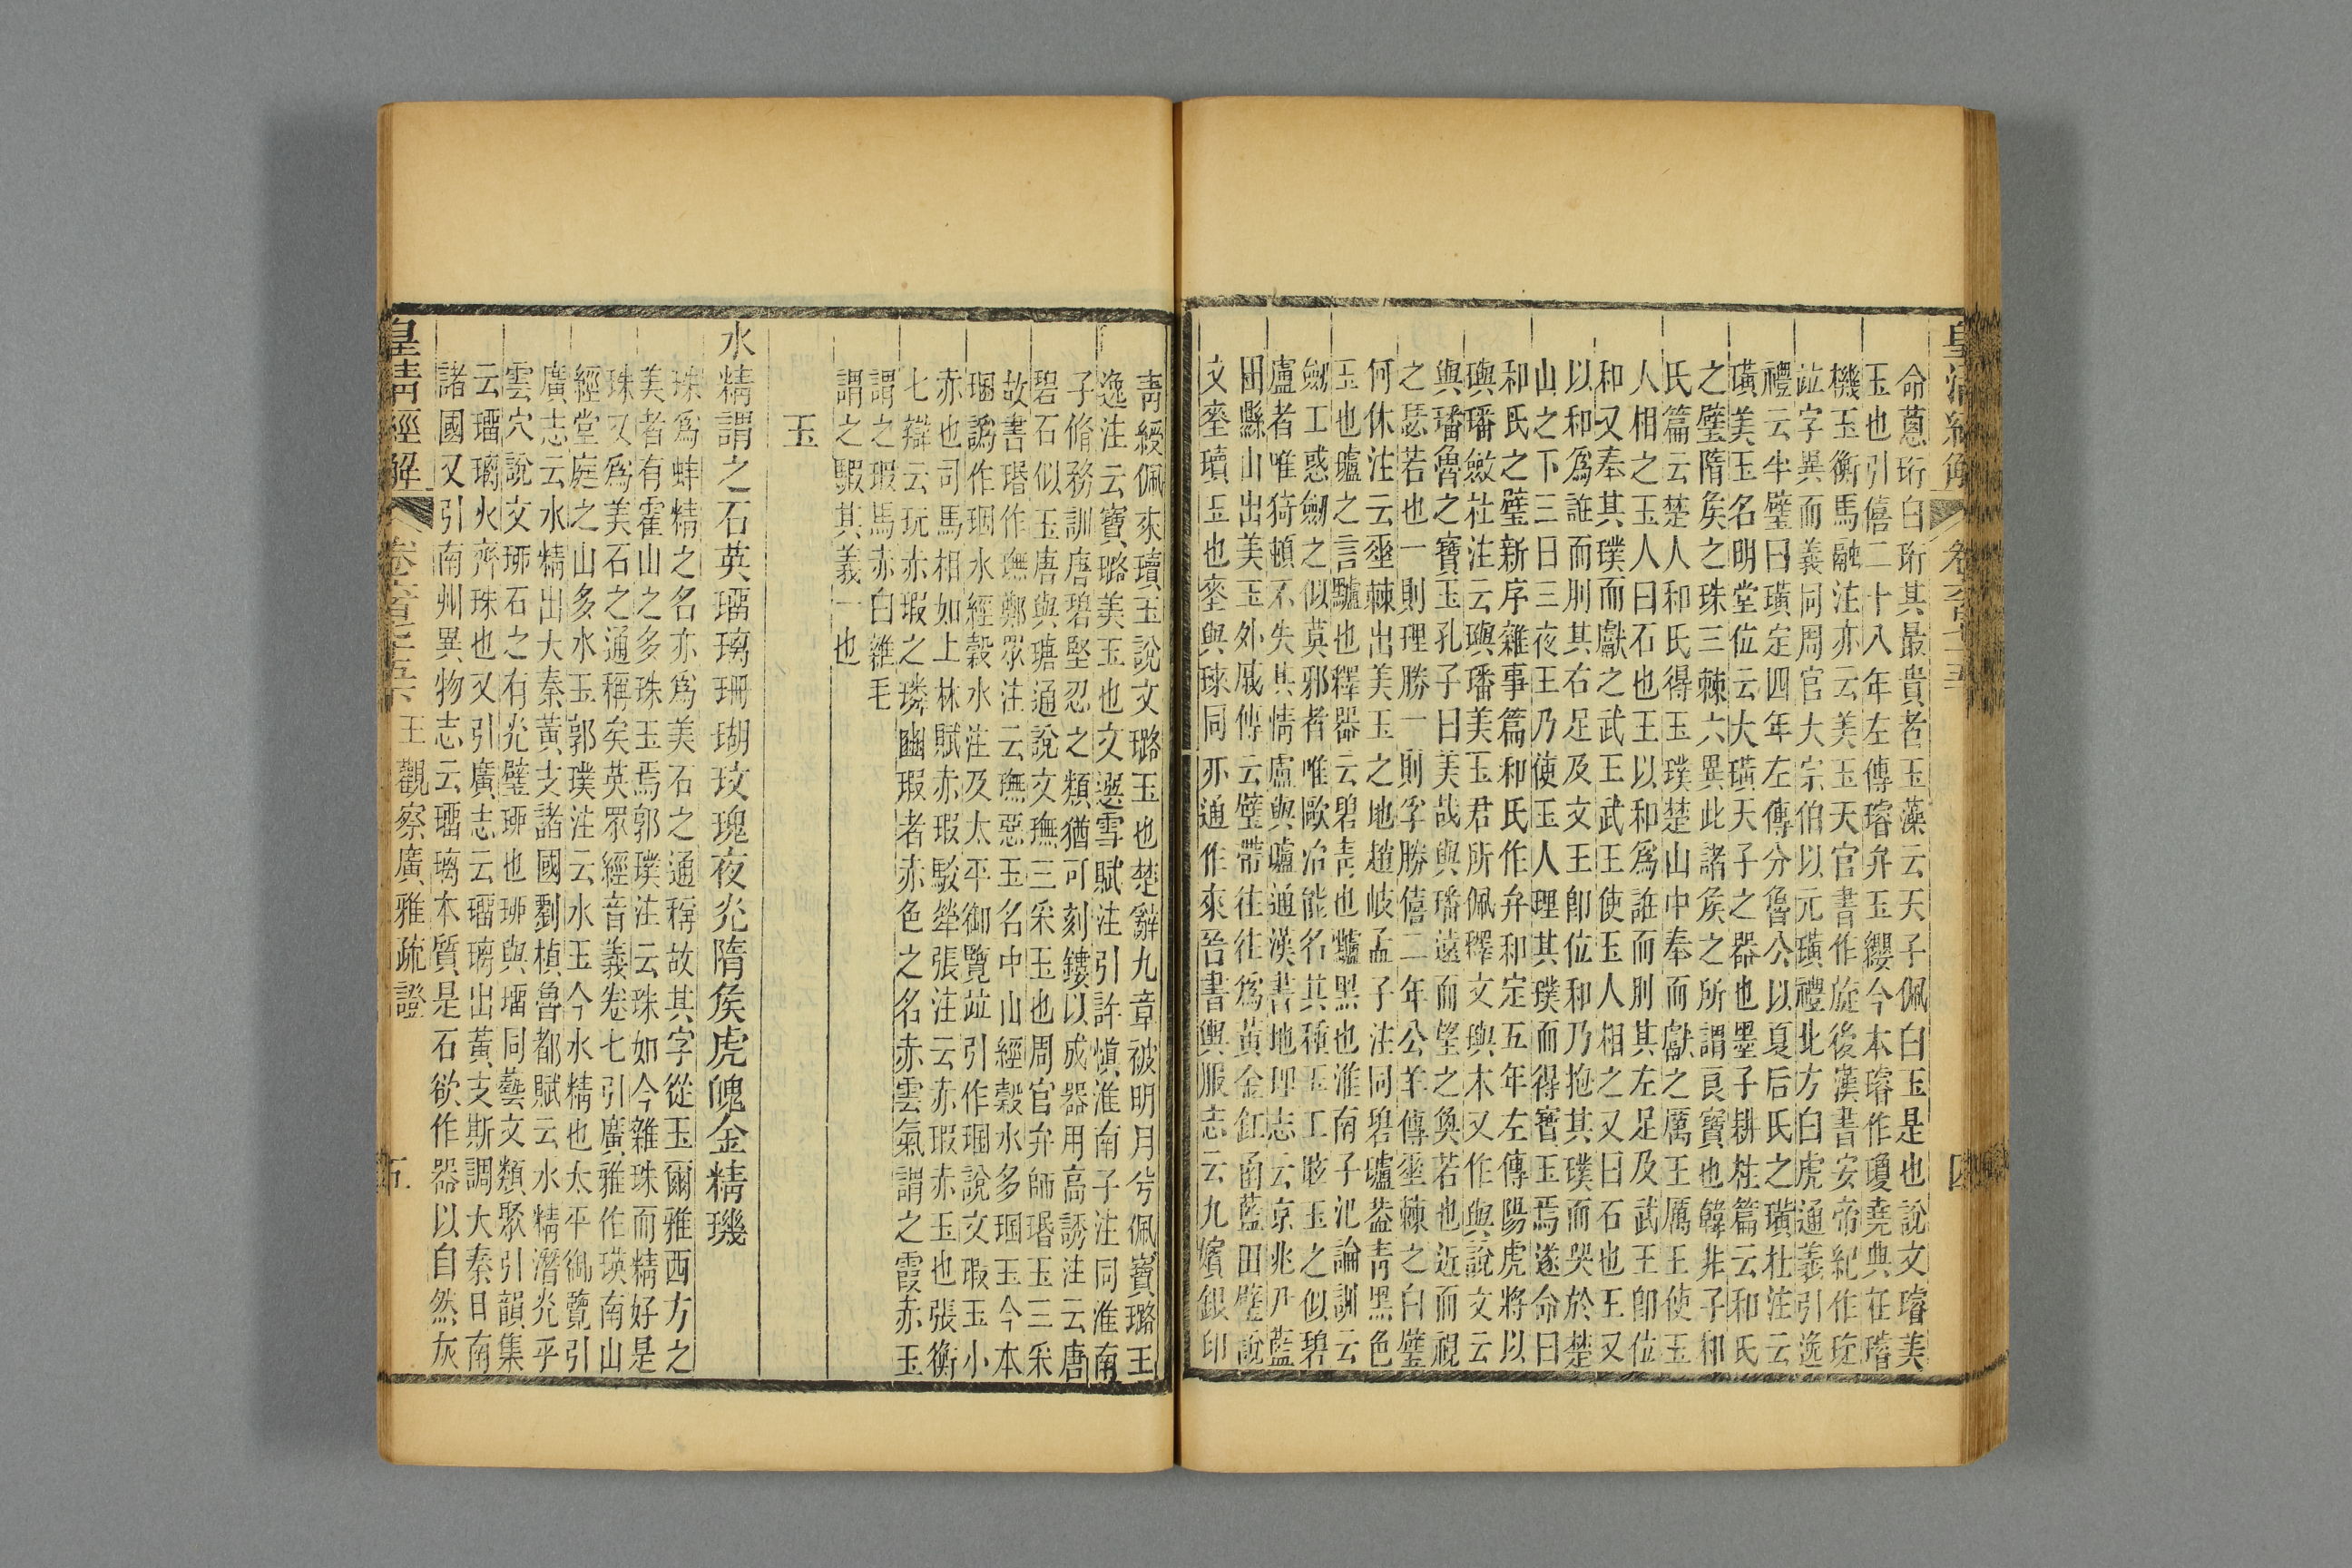 皇清經解
四
命蔥珩白珩其最貴者玉藻云天子佩白玉是也說文璿美
玉也引僖二十八年左傳璿弁玉纓今本璿作瓊堯典在璿
機玉衡馬融注亦云美玉天官書作旋後漢書安帝紀作琁
竝字異而義同周官大宗伯以元璜禮北方白虎通義引逸
禮云半璧曰璜定四年左傳分魯公以夏后氏之璜杜注云
璜美玉名明堂位云大璜天子之器也墨子耕柱篇云和氏
之璧隋矦之珠三棘六異此諸矦之所謂良寶也韓非子和
氏篇云楚人和氏得玉璞楚山中奉而獻之厲王厲王使玉
人相之玉人曰石也王以和為誑而刖其左足及武王卽位
和又奉其璞而獻之武王武王使玉人相之又曰石也王又
以和為誑而刖其右足及文王卽位和乃抱其璞而哭於楚
山之下三日三夜王乃使玉人理其璞而得寶玉焉遂命曰
和氏之璧新序雜事篇和氏作弁和定五年左傳陽虎將以
璵璠斂杜注云璵璠美玉君所佩釋文璵本又作與說文云
與璠魯之寶玉孔子曰美哉與璠遠而望之奐若也近而視
之瑟若也一則理勝一則孚勝僖二年公羊傳垂棘之白璧
何休注云垂棘出美玉之地趙岐孟子注同碧瓐葢青黑色
玉也瓐之言驢也釋器云碧青也黸黑也淮南子氾論訓云
劒工惑劒之似莫邪者唯歐冶能名其種玉工眩玉之似碧
盧者唯猗頓不失其情盧與瓐通漢書地理志云京兆尹藍
田縣山出美玉外戚傳云壁帶往往為黃金釭函藍田璧說
文㻎瓄玉也㻎與琜同亦通作來晉書輿服志云九嬪銀印
青綬佩來瓄玉說文璐玉也楚辭九章被明月兮佩寶璐王
逸注云寶璐美玉也文選雪賦注引許愼淮南子注同淮南
子脩務訓唐碧堅忍之類猶可刻鏤以成器用高誘注云唐
碧石似玉唐與瑭通說文璑三采玉也周官弁師瑉玉三采
故書瑉作璑鄭眾注云璑惡玉名中山經穀水多㻁玉今本
㻁譌作珚水經穀水注及太平御覽竝引作㻁說文瑕玉小
赤也司馬相如上林賦赤瑕駁犖張注云赤瑕赤玉也張衡
七辯云玩赤瑕之璘豳瑕者赤色之名赤雲氣謂之霞赤玉
謂之瑕馬赤白雜毛
謂之騢其義一也
玉
水精謂之石英瑠璃珊瑚玫瑰夜光隋矦虎魄金精璣
珠為蚌精之名亦為美石之通稱故其字從玉爾雅西方之
美者有霍山之多珠玉焉郭璞注云珠如今雜珠而精好是
珠又為美石之通稱矣英眾經音義卷七引廣雅作瑛南山
經堂庭之山多水玉郭璞注云水玉今水精也太平御覽引
廣志云水精出大秦黃支諸國劉楨魯都賦云水精潛光乎
雲穴說文珋石之有光璧珋也珋與瑠同藝文類聚引韻集
云瑠璃火齊珠也又引廣志云瑠璃出黃支斯調大秦日南
諸國又引南州異物志云瑠璃本質是石欲作器以自然灰
皇清經解
王觀察廣雅疏證
五